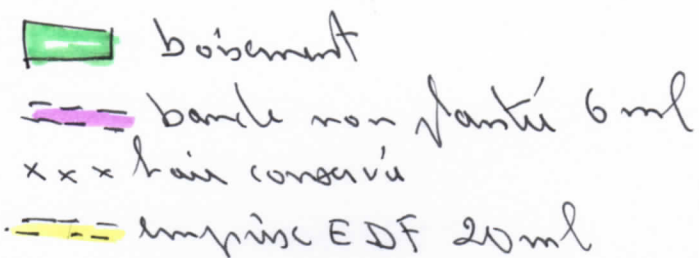 boisement
bande non plantée 6 ml
x x x haie conservée
emprise EDF 20 ml